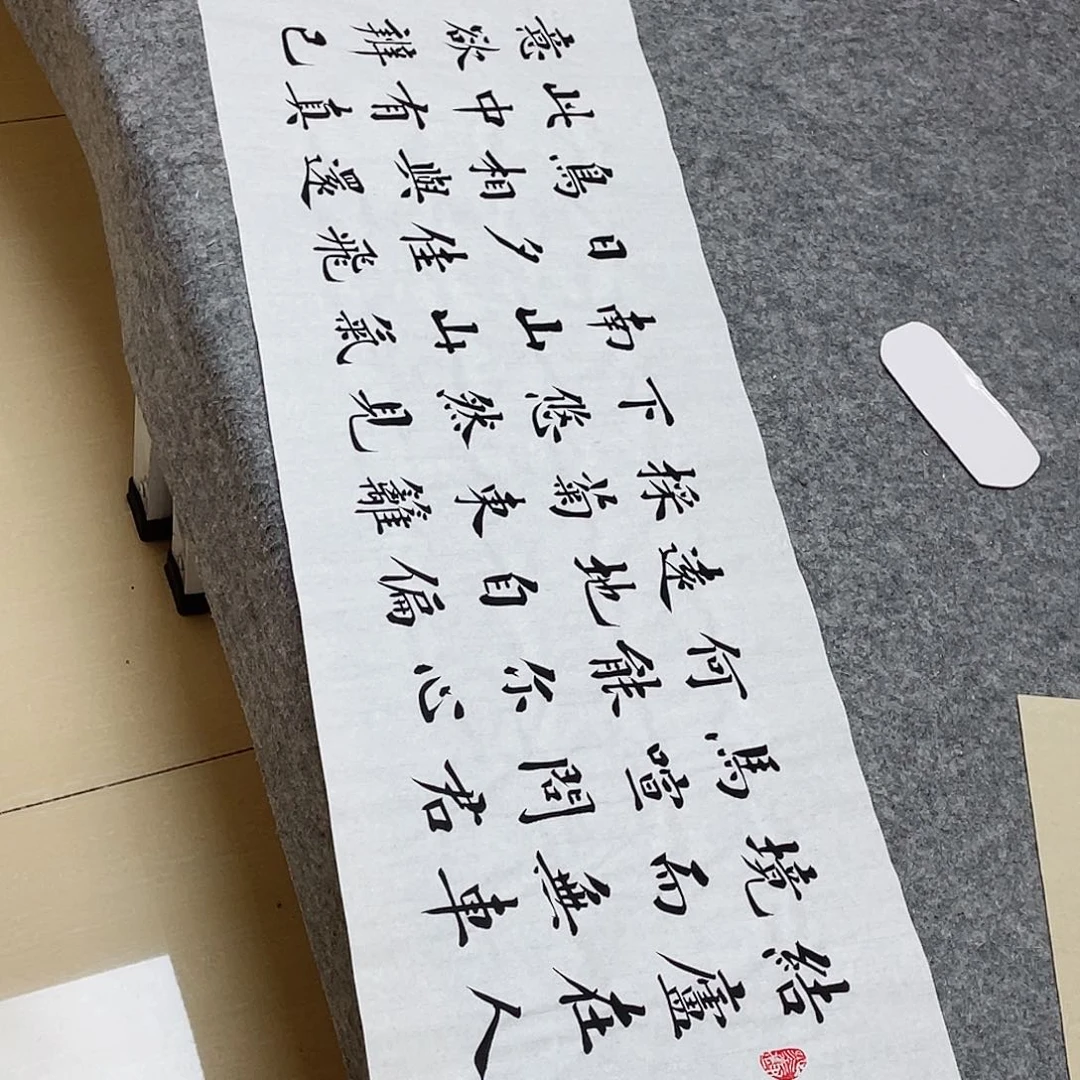 結廬在人
境而無車
馬喧問君
何能尔心
遠地自偏
採菊東籬
下悠然見
南山山氣
日夕佳飛
鳥相與還
此中有真
意欲辨已